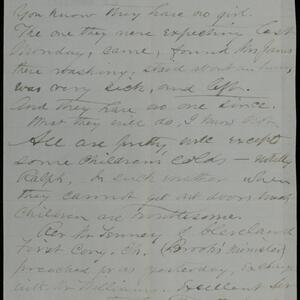 You know they have no girl.
The one they were expecting last
Monday, came, found Mrs
there washing; staid about an hour,
was very sick, and left.
And they have no one since.
What they will do, I
All are pretty well except
some children's colds –
Ralph. In such weather when
they cannot get out doors much
children are troublesome.
Rev Mr Tenney of Cleveland
First Cong. Ch. (Brooks' minister)
preached for us yesterday,
with Mr Williams. Excellent ser